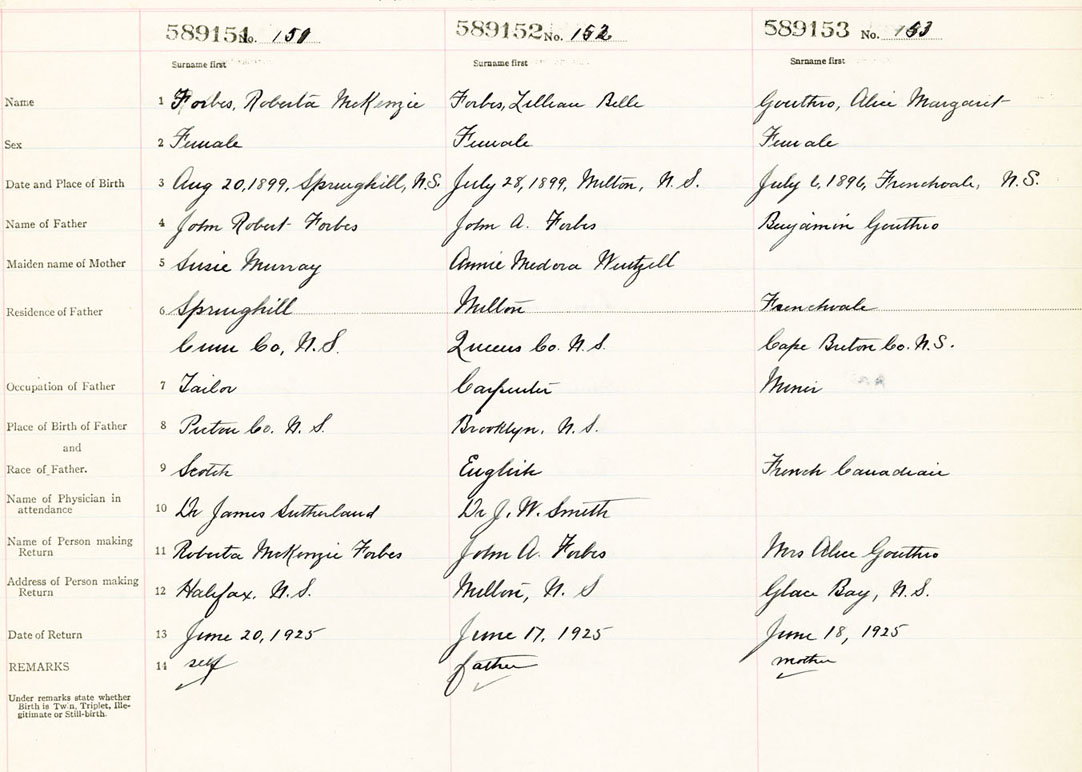 589151 No. 151 589152 No. 152 589153 No. 153
Surname first Surname first Surname first
Name 1 Forbes, Roberta McKenzie Forbes, Lillian Belle Gouthro, Alice Margaret
Sex 2 Female Female Female
Date and Place of Birth 3 Aug 20, 1899, Springhill, N.S. July 28, 1899, Milton, N.S. July 6, 1896, Frenchvale, N.S.
Name of Father 4 John Robert Forbes John A. Forbes Benjamin Gouthro
Maiden name of Mother 5 Susie Murray Annie Medora Wentzell
Residence of Father 6 Springhill Milton Frenchvale
Cum Co, N.S. Queens Co. N.S. Cape Breton Co. N.S.
Occupation of Father 7 Tailor Carpenter Miner
Place of Birth of Father 8 Pictou Co. N.S. Brooklyn, N.S.
and
Race of Father. 9 Scotch English French Canadian
Name of Physician in
attendance 10 Dr James Sutherland Dr J. W. Smith
Name of Person making
Return 11 Roberta McKenzie Forbes John A. Forbes Mrs Alice Gouthro
Address of Person making
Return 12 Halifax, N.S. Milton, N.S Glace Bay, N.S.
Date of Return 13 June 20, 1925 June 17, 1925 June 18, 1925
REMARKS 14 self father mother
Under remarks state whether
Birth is Twin, Triplet, Ille-
gitimate or Still-birth.